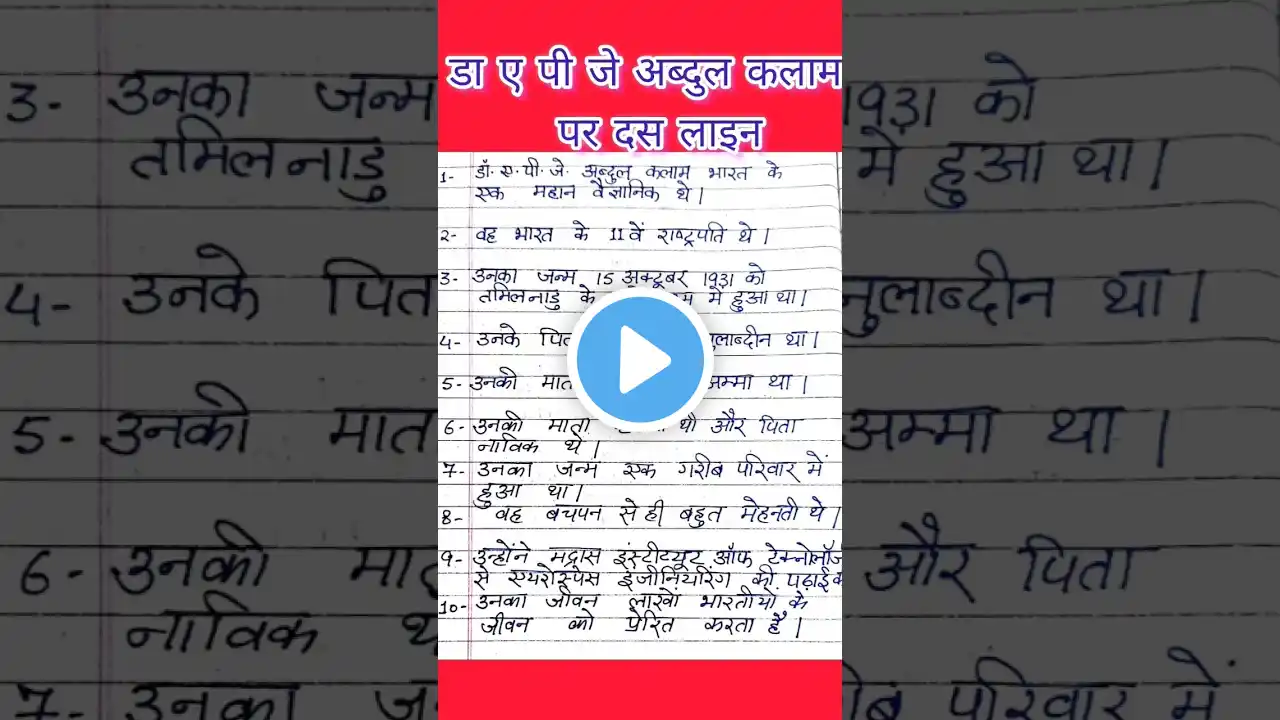 डा ए पी जे अब्दुल कलाम
पर दस लाइन
1- डॉ. ए. पी. जे. अब्दुल कलाम भारत के
एक महान वैज्ञानिक थे।
2- वह भारत के 11वें राष्ट्रपति थे।
3- उनका जन्म 15 अक्टूबर 1931 को
तमिलनाडु के में हुआ था।
4- उनके था।
5- उनकी अम्मा था।
6- उनकी माता थी और पिता
नाविक थे।
7- उनका जन्म एक गरीब परिवार में
हुआ था।
8- वह बचपन से ही बहुत मेहनती थे।
9- उन्होंने मद्रास इंस्टीट्यूट ऑफ
से एयरोस्पेस इंजीनियरिंग की
10- उनका जीवन लाखों भारतीयों के
जीवन को प्रेरित करता है।
3- उनका जन्म 1931 को
तमिलनाडु में हुआ था।
4- उनके था।
5- उनकी अम्मा था।
6- उनकी और पिता
नाविक
7- उनका परिवार में